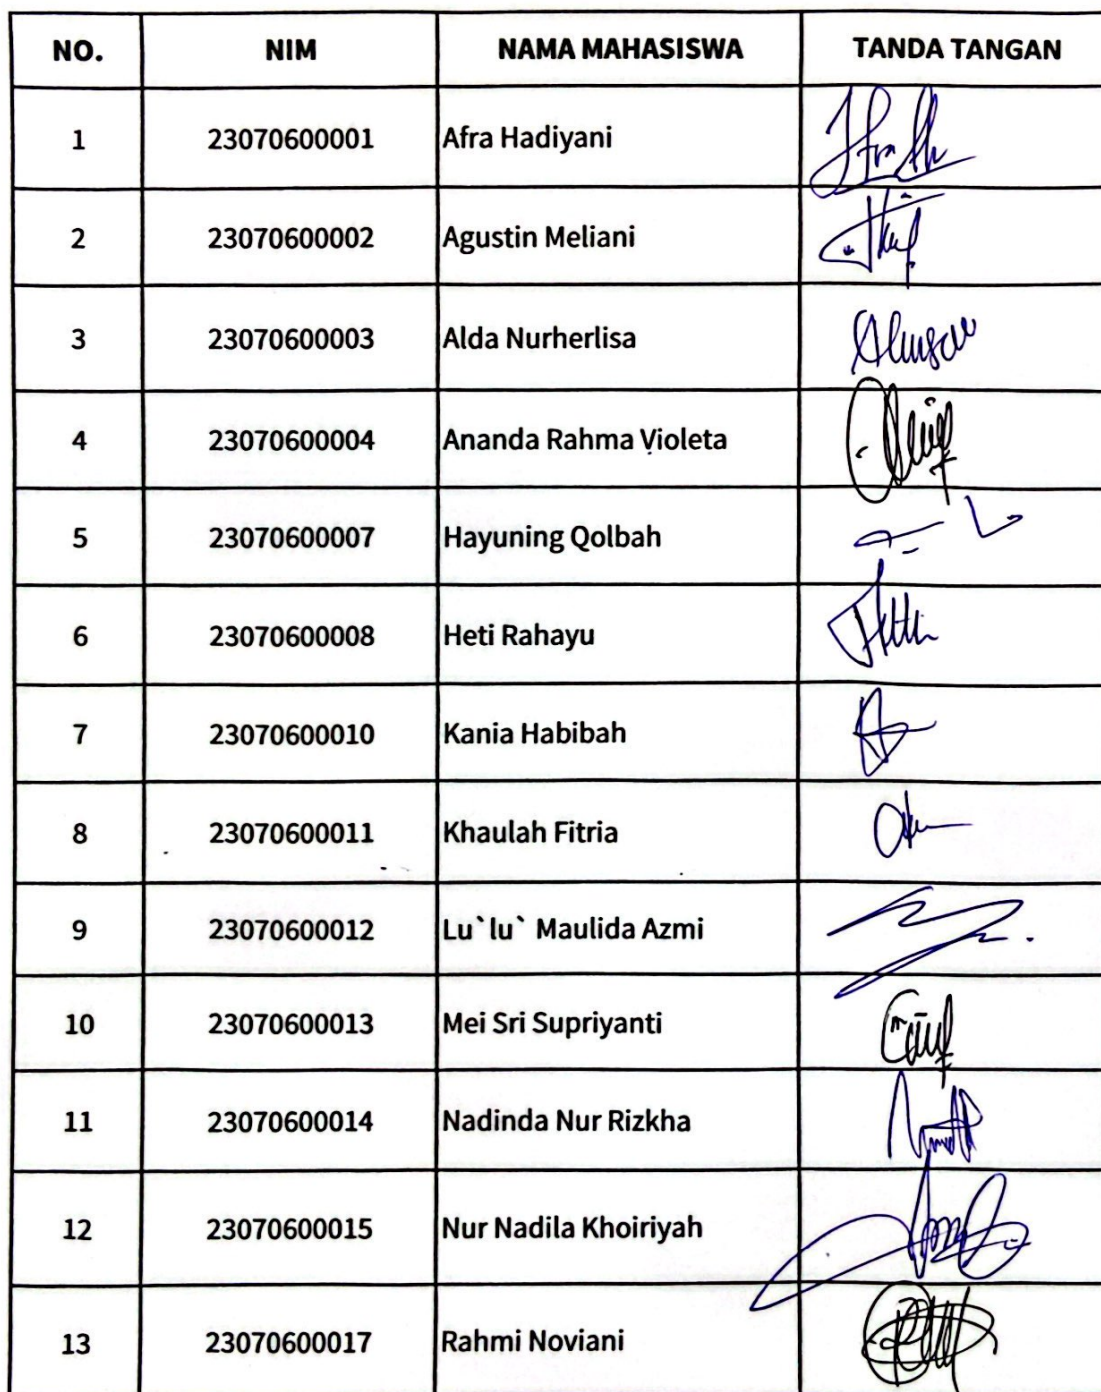 NO. NIM NAMA MAHASISWA TANDA TANGAN
1 23070600001 Afra Hadiyani
2 23070600002 Agustin Meliani
3 23070600003 Alda Nurherlisa
4 23070600004 Ananda Rahma Violeta
5 23070600007 Hayuning Qolbah
6 23070600008 Heti Rahayu
7 23070600010 Kania Habibah
8 23070600011 Khaulah Fitria
9 23070600012 Lu`lu` Maulida Azmi
10 23070600013 Mei Sri Supriyanti
11 23070600014 Nadinda Nur Rizkha
12 23070600015 Nur Nadila Khoiriyah
13 23070600017 Rahmi Noviani